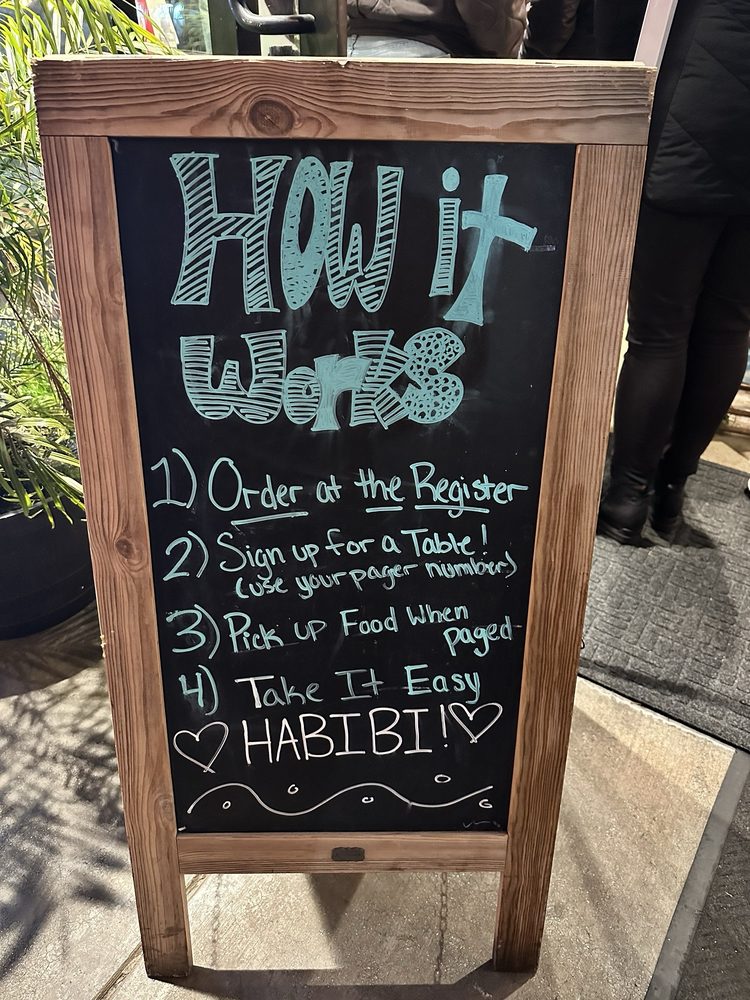 How it
Works
1) Order at the Register
2) Sign up for a Table!
(use your pager number)
3) Pick up Food When
paged
4) Take It Easy
♡ HABIBI! ♡